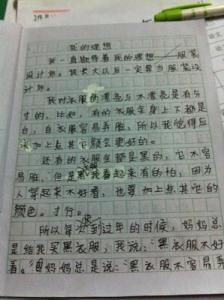 我的理想
我一直期待着我的理想——服装
设计师。我长大以后一定要当服装设
计师。
我对衣服的漂亮与不漂亮是有与
寸的，比如，有的衣服全身上下都是
白，白衣服容易弄脏，所以我觉得应
加上点其它颜会更好的。
还有的衣服全都是黑的，它不容
易脏，但是黑看起来有的怕，因为
人穿起来不好看，也要加上点其它的
颜色，才行。
所以每次到过年的时候，妈妈总
是给我买黑衣服，我说：“黑衣服不好
看。”妈妈总是说：“黑衣服不容易弄